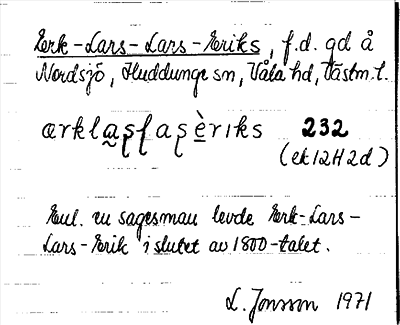 Erk-Lars-Lars-Eriks, f.d. gd å
Nordsjö, Huddunge sn, Våla hd, Västm.l.
ærklas̩ʃas̩èriks 232
(ek12H2d)
Enl. en sagesman levde Erk-Lars-
Lars-Erik i slutet av 1800-talet.
L. Jonsson 1971